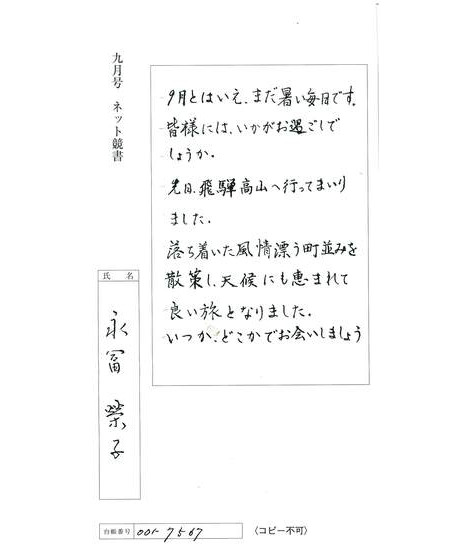 九月号 ネット競書
9月とはいえ、まだ暑い毎日です。
皆様には、いかがお過ごしで
しょうか。
先日、飛騨高山へ行ってまいり
ました。
落ち着いた風情漂う町並みを
散策し、天候にも恵まれて
良い旅となりました。
いつか、どこかでお会いしましょう
氏 名
永冨 榮子
台帳番号 001-7567
(コピー不可)